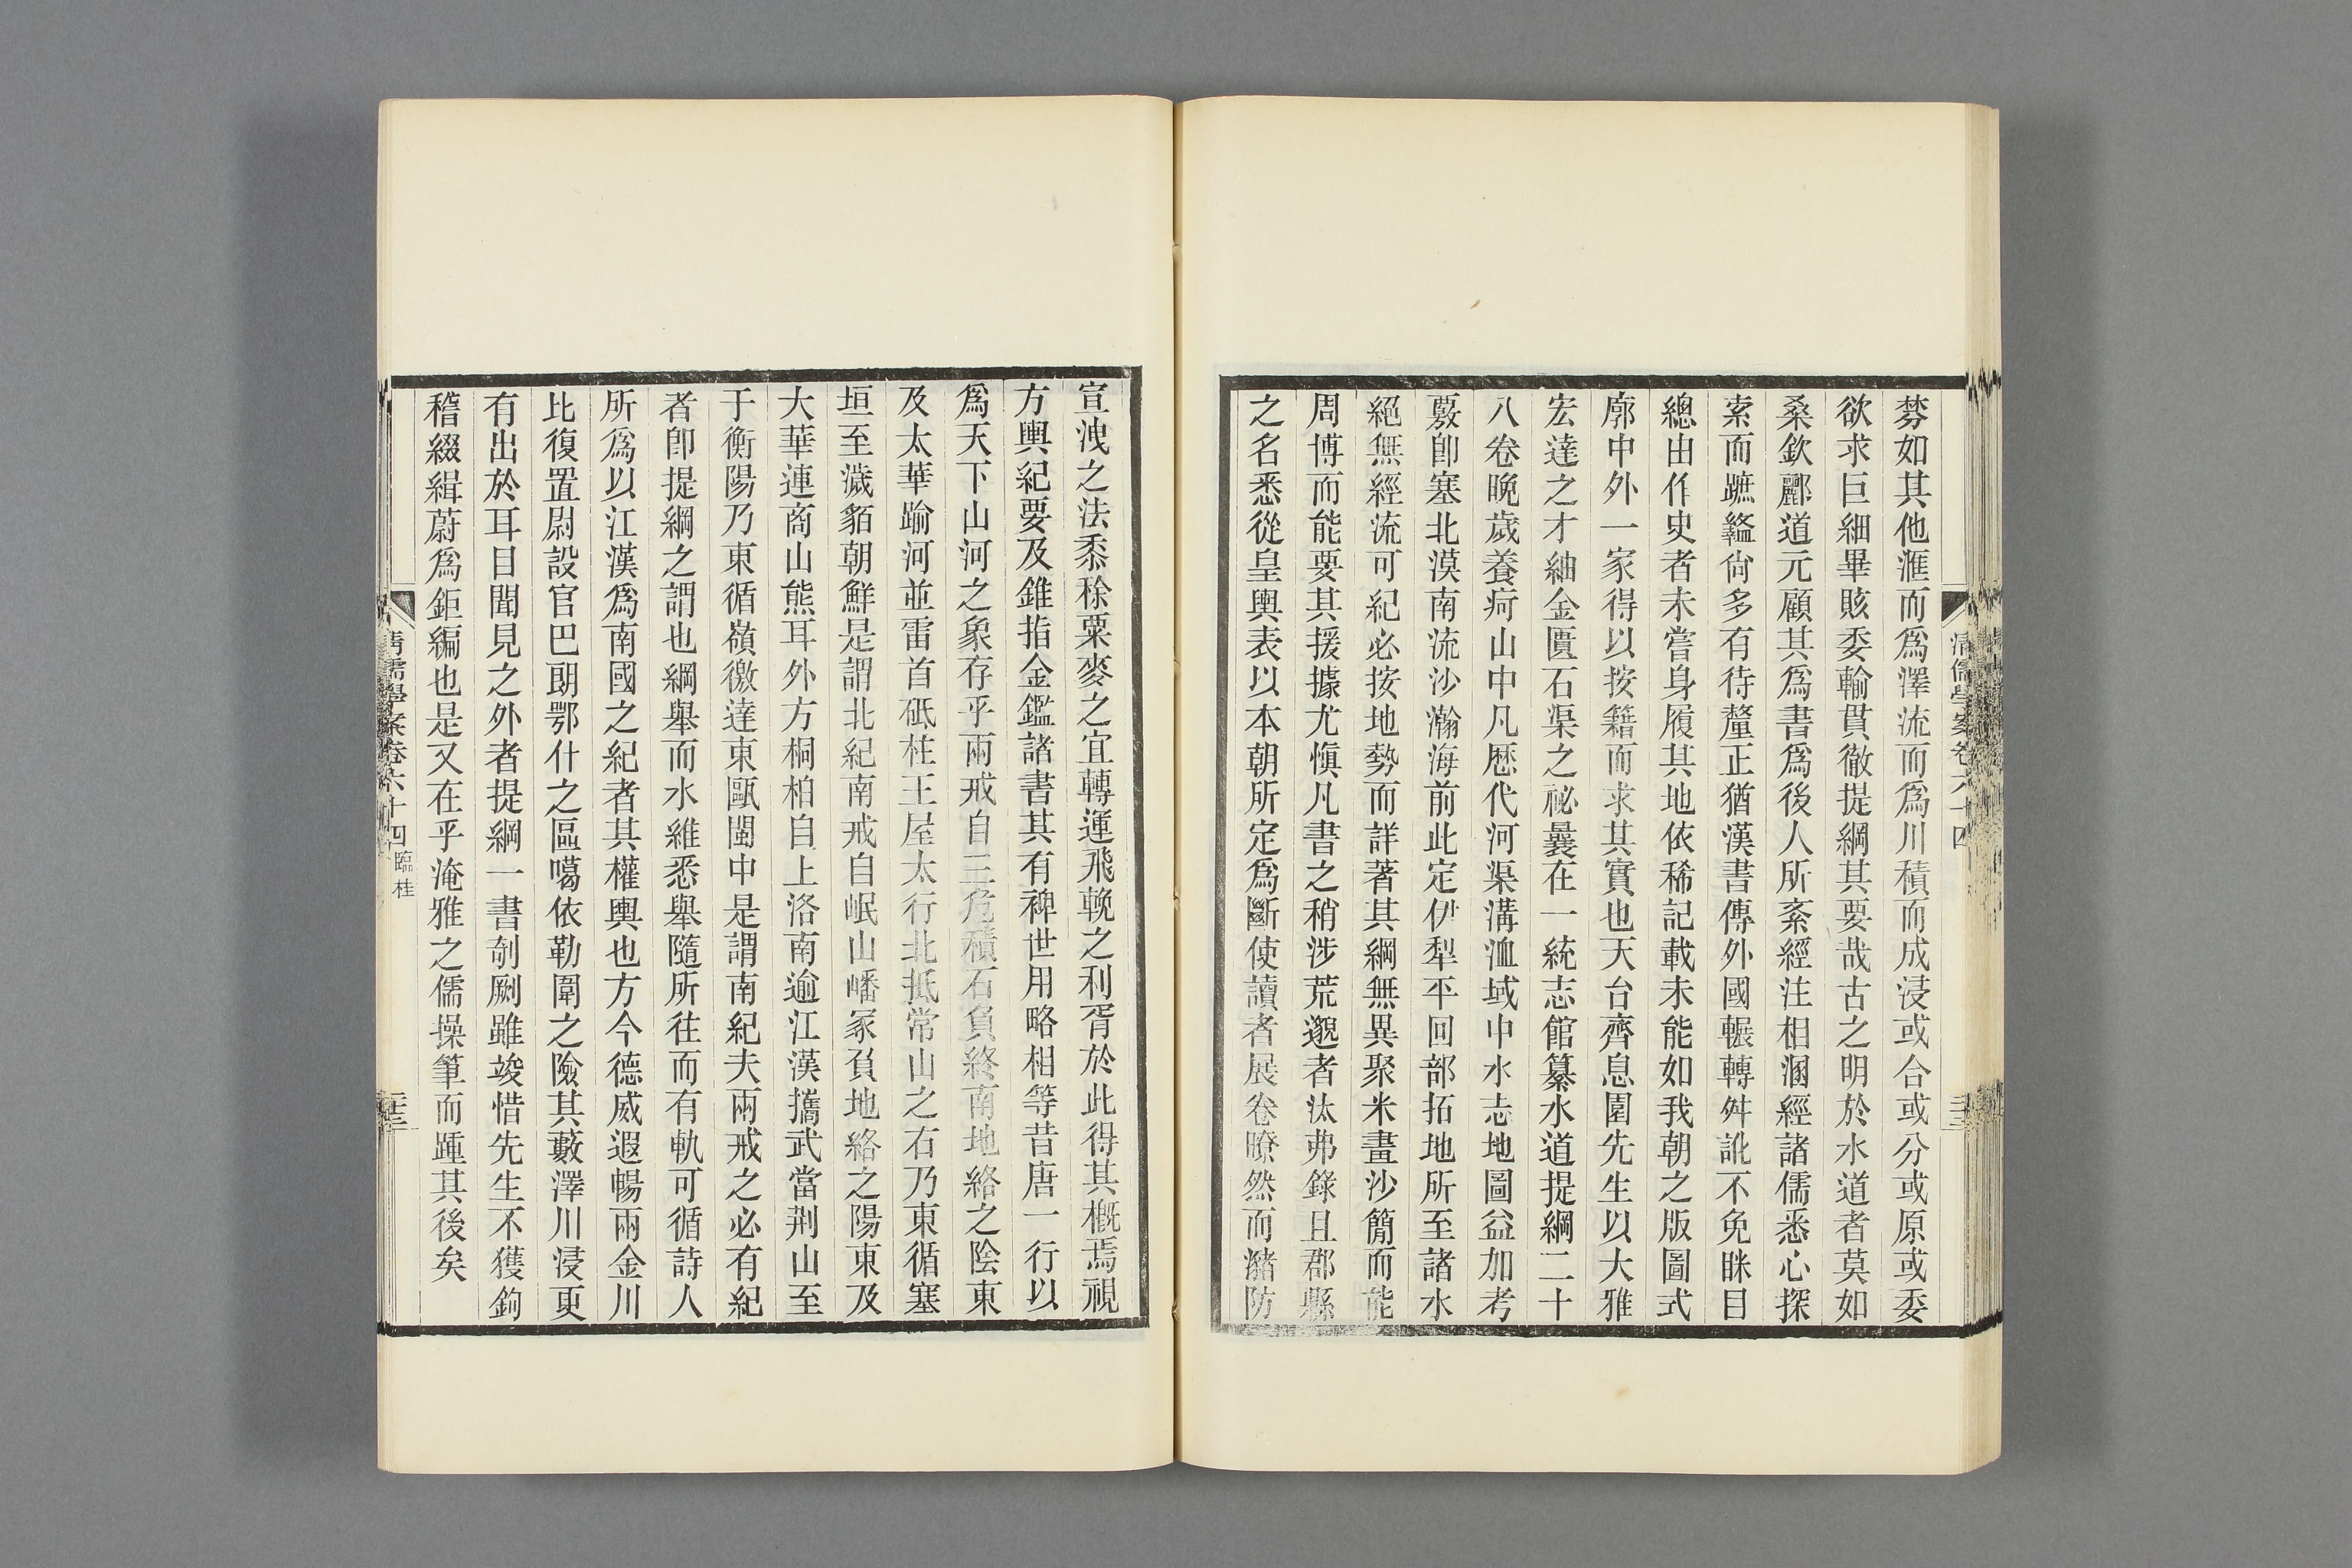 棼如其他滙而爲澤流而爲川積而成浸或合或分或原或委
欲求巨細畢賅委輸貫徹提綱其要哉古之明於水道者莫如
桑欽酈道元顧其爲書爲後人所紊經注相溷經諸儒悉心探
索而蹠盭尙多有待釐正猶漢書傳外國輾轉舛訛不免眯目
總由作史者未嘗身履其地依稀記載未能如我朝之版圖式
廓中外一家得以按籍而求其實也天台齊息園先生以大雅
宏達之才紬金匱石渠之祕曩在一統志館纂水道提綱二十
八卷晩歲養疴山中凡歷代河渠溝洫域中水志地圖益加考
覈卽塞北漠南流沙瀚海前此定伊犁平回部拓地所至諸水
絕無經流可紀必按地勢而詳著其綱無異聚米畫沙簡而能
周博而能要其援據尤愼凡書之稍涉荒邈者汰弗錄且郡縣
之名悉從皇輿表以本朝所定爲斷使讀者展卷瞭然而瀦防
清儒學案卷六十四
宣洩之法黍稌粟麥之宜轉運飛輓之利胥於此得其槪焉視
方輿紀要及錐指金鑑諸書其有裨世用略相等昔唐一行以
爲天下山河之象存乎兩戒自三危積石負終南地絡之陰東
及太華踰河並雷首砥柱王屋太行北抵常山之右乃東循塞
垣至濊貊朝鮮是謂北紀南戒自岷山嶓冢負地絡之陽東及
大華連商山熊耳外方桐柏自上洛南逾江漢攜武當荆山至
于衡陽乃東循嶺徼達東甌閩中是謂南紀夫兩戒之必有紀
者卽提綱之謂也綱舉而水維悉舉隨所往而有軌可循詩人
所爲以江漢爲南國之紀者其權輿也方今德威遐暢兩金川
比復置尉設官巴朗鄂什之區噶依勒圍之險其藪澤川浸更
有出於耳目聞見之外者提綱一書剞劂雖竣惜先生不獲鉤
稽綴緝蔚爲鉅編也是又在乎淹雅之儒操筆而踵其後矣
清儒學案卷六十四 臨桂